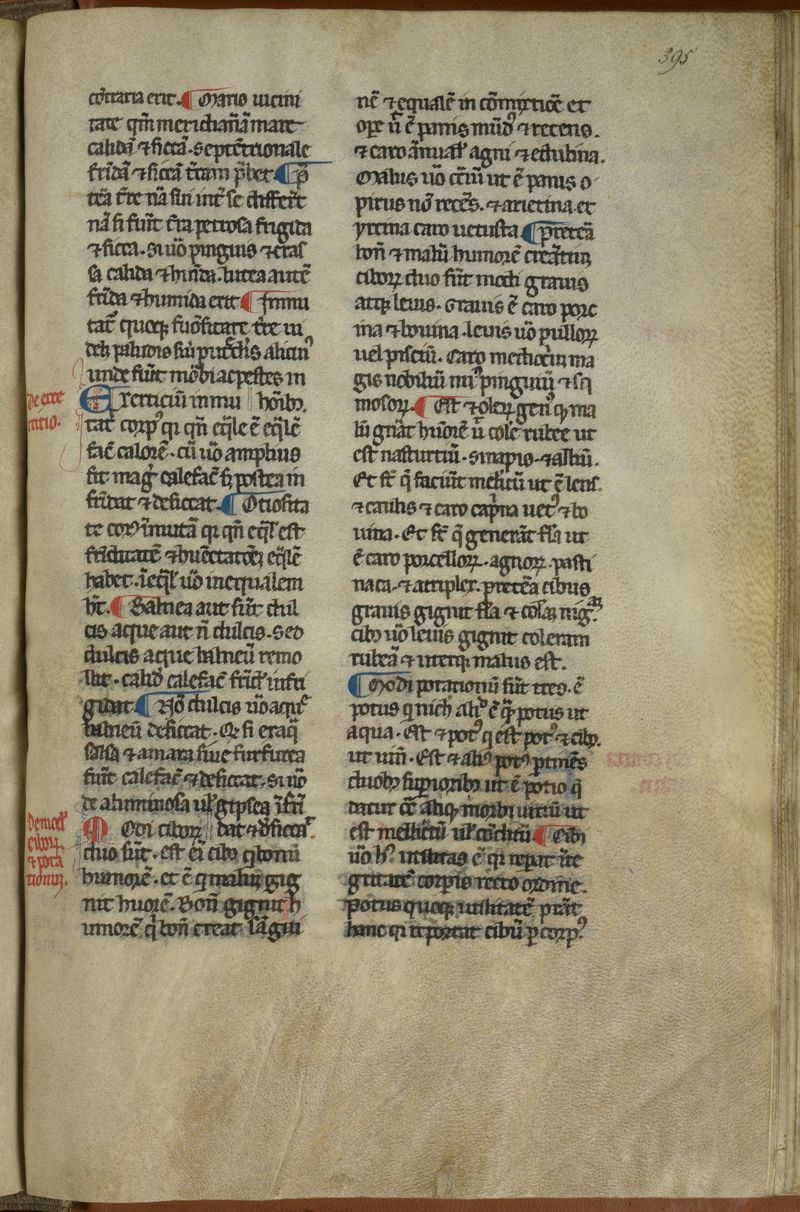 395
cõtraria erit. ¶ Maris uicini
tate qm̃ meridianã mare
calidã ⁊ siccã. Septẽtrionale
fridã ⁊ siccã t̃ram p̃bet. ¶ p̃
tẽa t̃re nã sui int̃ se differẽt
nã si fuit̃ t̃ra petrosa frigida
⁊ sicca. Si u̾o pinguis ⁊ cras
sa calida ⁊ hũida. lutea autẽ
frida ⁊ humida erit ¶ Inmu
tat̾ quoq; fumositate t̃re ui
delꝫ paludis siũ putridis alicuiꝰ
unde fiũt morbi ac pestes in
de exer
citatio.
Exerticiũ inmu hõibꝫ.
tat corpꝰ qꝛ qñ eq̃le ẽ eq̃lẽ
facẽ calorẽ. cũ u̾o amplius
fit mag̾ calefac̃ sꝫ postea in
fridat ⁊ desiccat. ¶ Otiosita
te corpꝰ ĩmutat̃ qꝛ qñ eq̃l̾ est
friditatẽ ⁊ huẽctatõeꝫ eq̃lẽ
habet. ĩeq̃l̾ u̾o inequalem
hꝫ̃. ¶ Balnea aut sũt dul
cis aque aut ñ dulcis. Sed
dulcis aque balneũ remo
llit. calidũ calefac̃ frid̾ infri
gidat ¶ Nõ dulcis u̾o aque
balneũ desiccat. Qꝛ si er̃ aq̃
salsa ⁊ amara siue sulfurea
fuit̃ calefac̃ ⁊ desiccat. Si u̾o
de aluminosa ul̾ gipsea ĩfri
de mod̾
ciborꝫ
⁊ pota
tionuꝫ.
Modi ciborꝫ dat ⁊ desiccat̾.
duo sũt. est eĩ cibꝰ q bonũ
humorẽ. et ẽ q malũ gig
nit huorẽ. Bonũ gignit h
umorẽ q̾ bonũ creat sãgui
nẽ ⁊ equalẽ in cõmixtiõe et
oꝑe ũ ẽ panis mũdꝰ ⁊ recens.
⁊ caro ãnual̾ agni ⁊ edulina.
Malus u̾o c̾riũ ut ẽ panis o
pirus nõ recẽs. ⁊ arietina. et
yrcina caro uetusta ¶ pretẽa
bonũ ⁊ malũ humorẽ creãtiũ
ciborꝫ duo sũt modi grauis
atqꝫ leuis. Grauis ẽ caro porc
ina ⁊ bouina. leuis u̾o pullorꝫ
uel pisciũ. Caro mediocriũ ma
gis nobiliũ mĩꝰ pinguiũ ⁊ sq̾
mosorꝫ. ¶ Est ⁊ olerꝫ genꝰ q ma
lũ gñat huorẽ ũ colẽ rubee ut
est nasturtiũ. sinapis. ⁊ alliũ.
Et s̃t q̾ faciũt melãcũ ut ẽ lens.
⁊ caulis ⁊ caro capͥna uetꝰ ⁊ bo
uina. Et s̃t q̾ generãt fl̃a ut
ẽ caro porcellorꝫ. agnorꝫ. pasti
naca. ⁊ atriplex. pretẽa cibus
grauis gignit fl̃a ⁊ colãꝫ nigͣꝫ
cibꝰ u̾o leuis gignit coleram
rubeã ⁊ uterqꝫ malus est.
¶ Modi potationũ sũt tres. ẽ
potus q nich̾ aliꝰ ẽ q̃ potus ut
aqua. Est ⁊ potꝰ q est potꝰ ⁊ cibꝰ.
ut uiñ. Est ⁊ aliꝰ potꝰ ꝑtinẽs
duobꝫ supioribꝫ ut ẽ potio q̾
datur cõt̃ aliqꝫ morbi uitiũ ut
est mellitũ ul̾ cõditũ ¶ Cibi
u̾o h̾ utilitas ẽ qꝛ reparat ĩte
gritatẽ corporis recto ordine.
Potus quoqꝫ utilitatẽ prãt
hanc qꝛ deportat cibũ ꝑ corpꝰ.